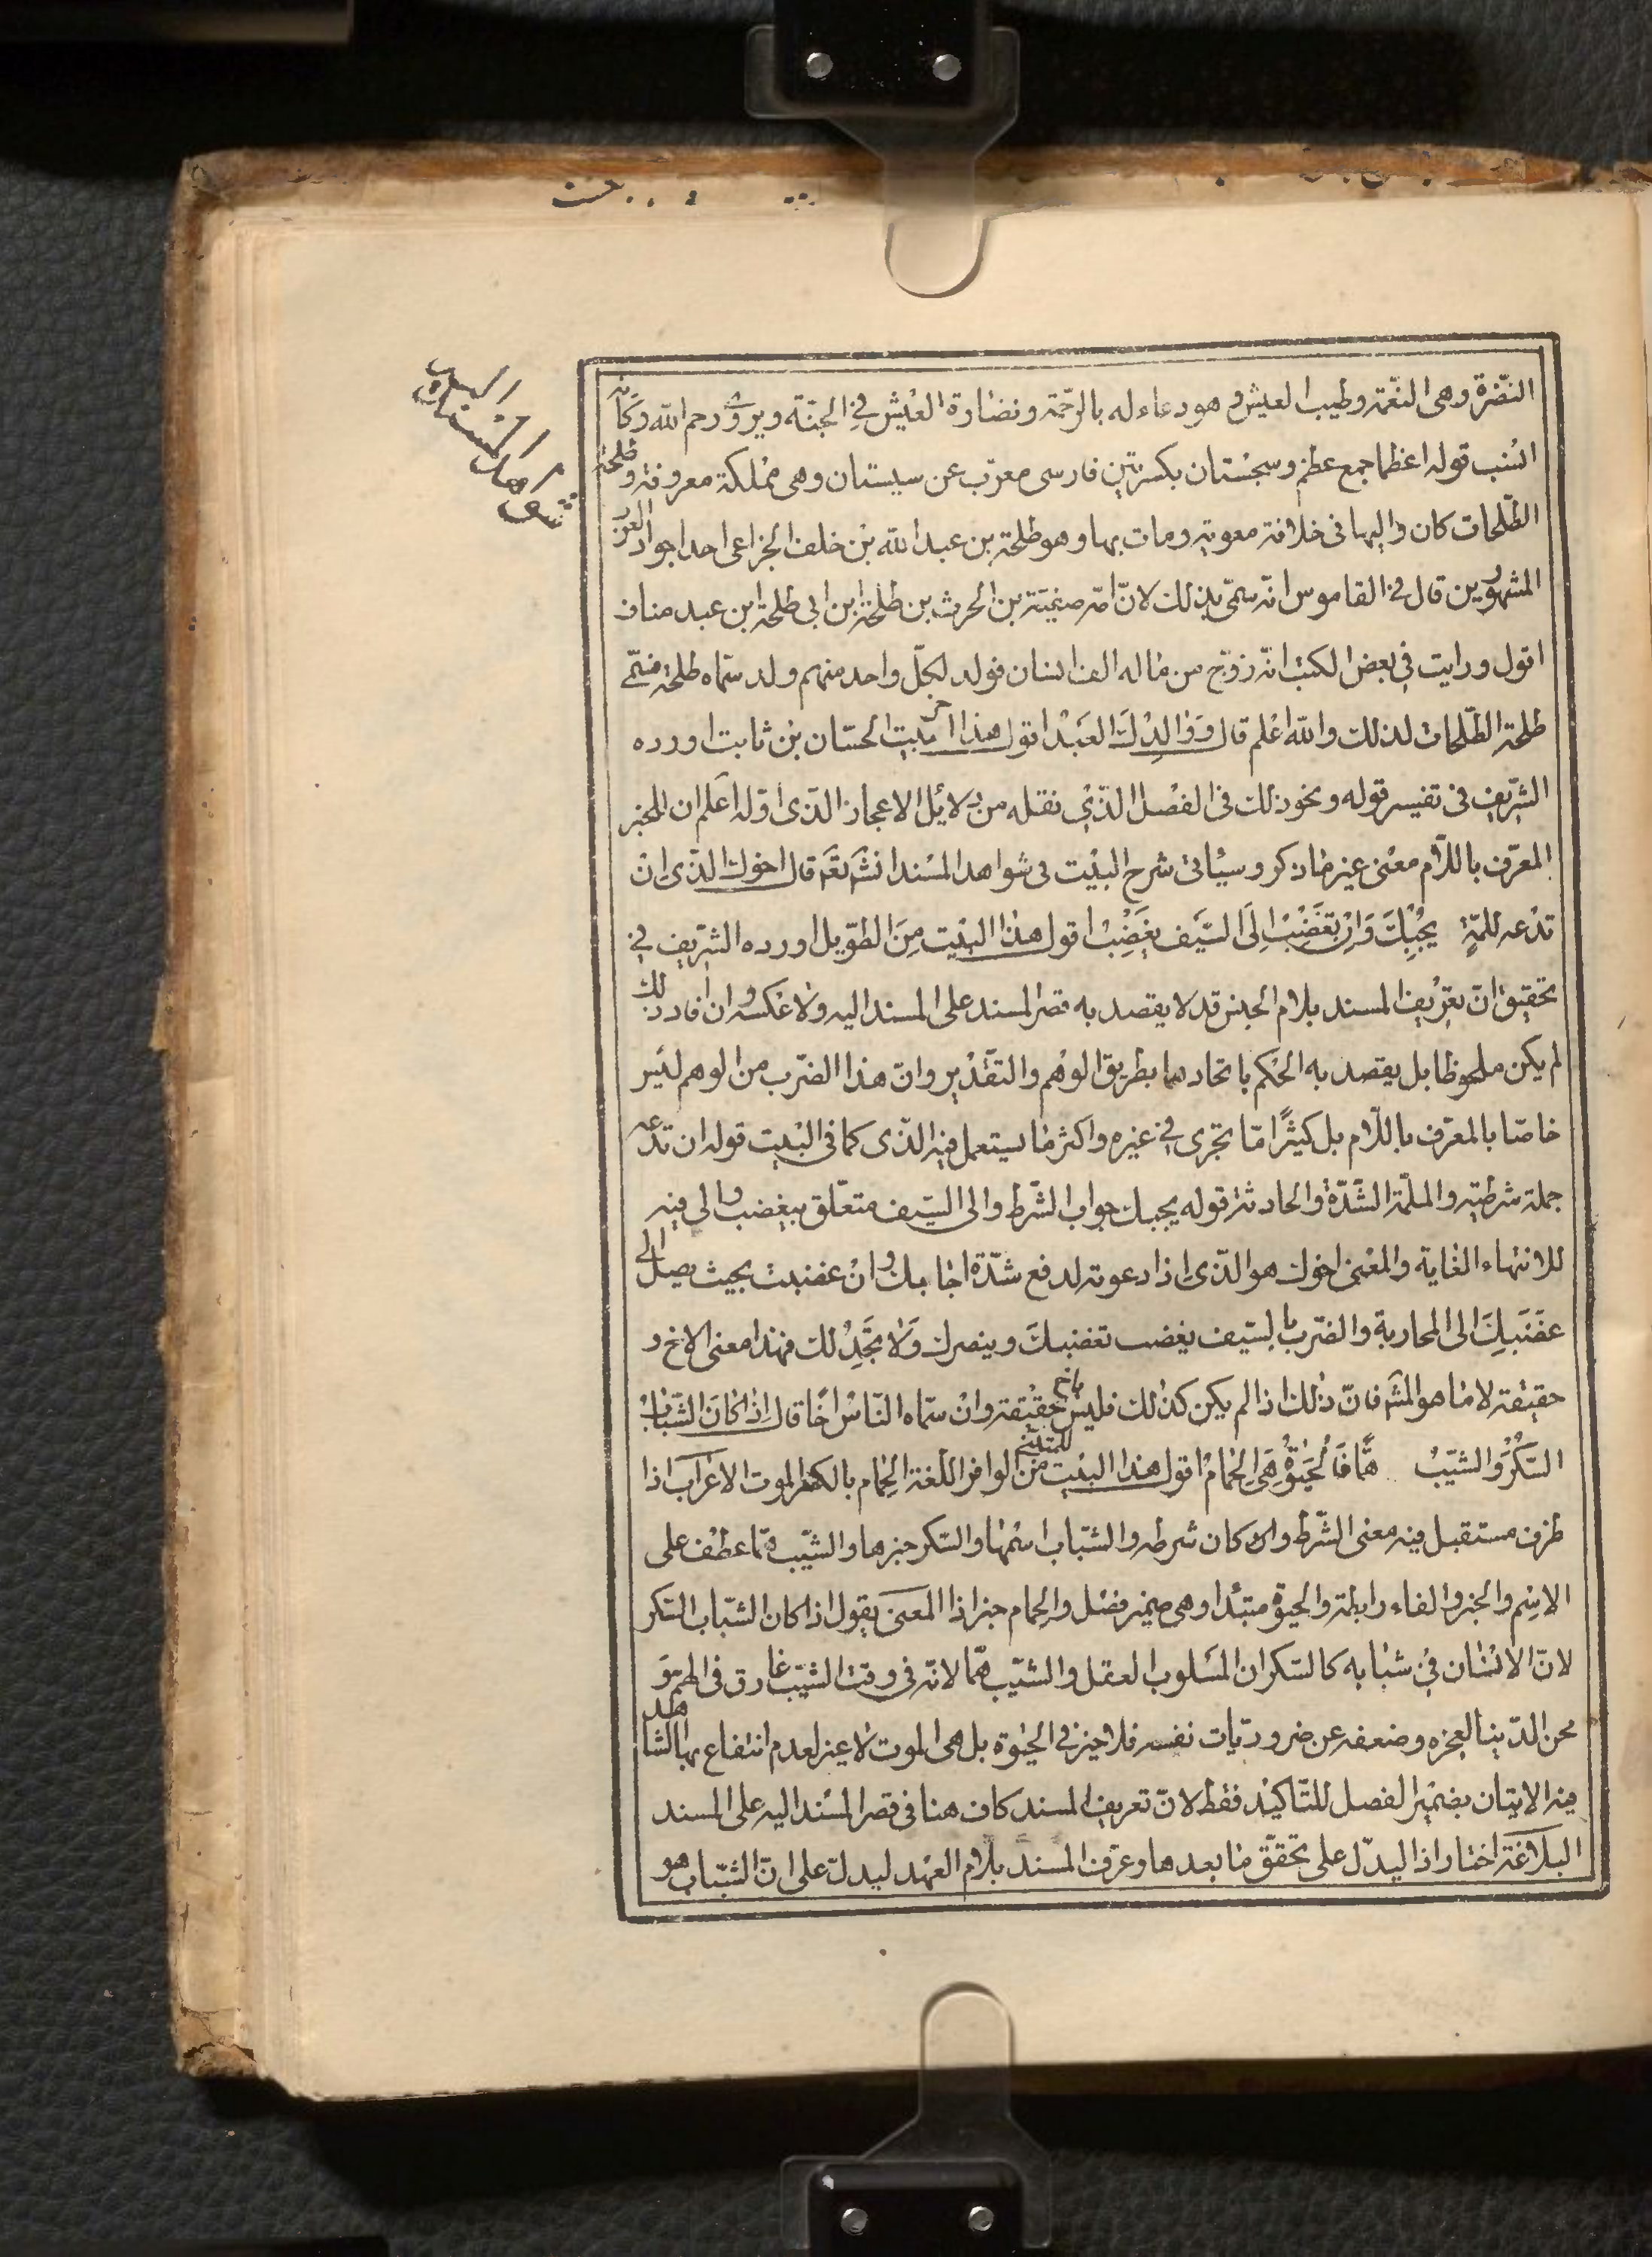 النّضرة وهى النعّمة وطيب العيش و هو دعاء له بالرّحمة ونضارة العيش فى الجنّة ويروى رحم الله وكانه
انسب قوله اعظما جمع عظم وسجستان بكسرتين فارسى معرّب عن سيستان وهى مملكة معروفة وطلحة
الطّلحات كان واليها فى خلافة معوية ومات بها وهو طلحة بن عبد الله بن خلف الخزاعى احد اجواد العرب
المشهورين قال فى القاموس انّه سمّى بذلك لانّ امّه صفيّة بن الحرث بن طلحة ابن ابى طلحة ابن عبد مناف
اقول ورايت فى بعض الكتب انّه زوّج من ماله الف انسان فولد لكلّ واحد منهم ولد سمّاه طلحة فسمّى
طلحة الطّلحات لذلك والله اعلم قال وَوَالِدُكَ العَبْدُ اقول هذا اخر بيت لحسّان بن ثابت اورده
الشّريف فى تفسير قوله ونحو ذلك فى الفصل الّذى نقله من دلائل الاعجاز الّذى اوّله اعلم ان للخبر
المعرّف باللّام معنى غير ما ذكر وسيأتى شرح البيت فى شواهد المسند انشَ تعَ قال اخوك الّذى ان
تدعه للمّة يُجِبْكَ وَاِنْ تَغْضَبْ اِلَى السَّيْفِ يَغْضَبْ اقول هذا البيت مِنَ الطّويل اورده الشّريف فى
تحقيق انّ تعريف المسند بلام الجنس قد لا يقصد به قصر المسند على المسند اليه ولا عكسه وان افاد ذلك
لم يكن ملحوظا بل يقصد به الحكم باتحادهما بطريق الوهم والتقدير وانّ هذا الضّرب من الوهم ليس
خاصّا بالمعرّف باللّام بل كثيرًا مّا تجرى فى غيره واكثر ما يستعمل فيه الّذى كما فى البيت قوله ان تدعه
جملة شرطية والملمّة الشّدّة والحادثة قوله يجبك جواب الشّرط والى السّيف متعلّق بيغضب والى فيه
للانتهاء الغاية والمعنى اخوك هو الّذى اذا دعوته لدفع شدّة اجابك وان غضبت بحيث يصل الى
غضبك الى المحاربة والضّرب بالسّيف يغضب تغضبك وينصرك وَلا يخذُلك فهذا معنى الاخ و
حقيقته لا ما هو المشَ فانّ ذلك اذا لم يكن كذلك فليس باخ حقيقة وان سمّاه النّاس اخًا قال اِذا كانَ الشّبابُ
السُّكْرُ وَالشّيْبُ همًّا فَالْحَيٰوةُ هِىَ الحِمامُ اقول هذا البيت للمتنبّى من الوافر اللّغة الحِمام بالكسر الموت الاعراب اذا
ظرف مستقبل فيه معنى الشّرط وكان شرطه والشّباب اسمها والسّكر خبرها والشّيب همّا عطف على
الاسم والخبر والفاء رابطة والحيوة مبتدا وهى ضمير فصل والحمام خبر اذا المعنى يقول اذا كان الشّباب السّكر
لانّ الانسان فى شبابه كالسّكران المسلوب العقل والشّيب همّا لانّه فى وقت الشّيب غارق فى الهم و
محن الدّنيا لعجزه وضعفه عن ضروريّات نفسه فلا خير فى الحيوة بل هى الموت لا غير لعدم انتفاع بها الشاهد
فيه الاتيان بضمير الفصل للتّاكيد فقط لانّ تعريف المسند كاف هنا فى قصر المسند اليه على المسند
البلاغة اختار اذا ليدلّ على تحقّق ما بعدها وعرّف المسند بلام العهد ليدلّ على انّ الشّباب هو